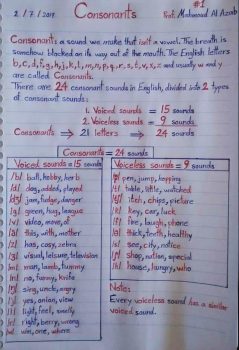 #1
2/7/2019 Consonants Prof. Mahmoud Al Azab
Consonant: a sound we make that isn't a vowel. The breath is
somehow blocked on its way out of the mouth. The English letters
b, c, d, f, g, h, j, k, l, m, n, p, q, r, s, t, v, x, z and usually w and y
are called Consonants.
There are 24 consonant sounds in English, divided into 2 types
of consonant sounds:
1. Voiced sounds = 15 sounds
2. Voiceless sounds = 9 sounds
Consonants ⇒ 21 letters ⇒ 24 sounds
Consonants = 24 sounds
Voiced sounds = 15 sounds
/b/ ball, hobby, herb
/d/ dog, added, played
/dʒ/ jam, fudge, danger
/g/ green, hug, league
/v/ video, move, of
/ð/ this, with, mother
/z/ has, cozy, zebra
/ʒ/ visual, leisure, television
/m/ man, lamb, tummy
/n/ no, funny, knife
/ŋ/ sing, uncle, angry
/j/ yes, onion, view
/l/ light, feel, smelly
/r/ right, berry, wrong
/w/ win, one, where
Voiceless sounds = 9 sounds
/p/ pen, jump, hopping
/t/ table, little, watched
/tʃ/ itch, chips, picture
/k/ key, car, luck
/f/ fire, laugh, phone
/θ/ thick, teeth, healthy
/s/ see, city, notice
/ʃ/ shop, nation, special
/h/ house, hungry, who
Note:
Every voiceless sound has a similar
voiced sound.